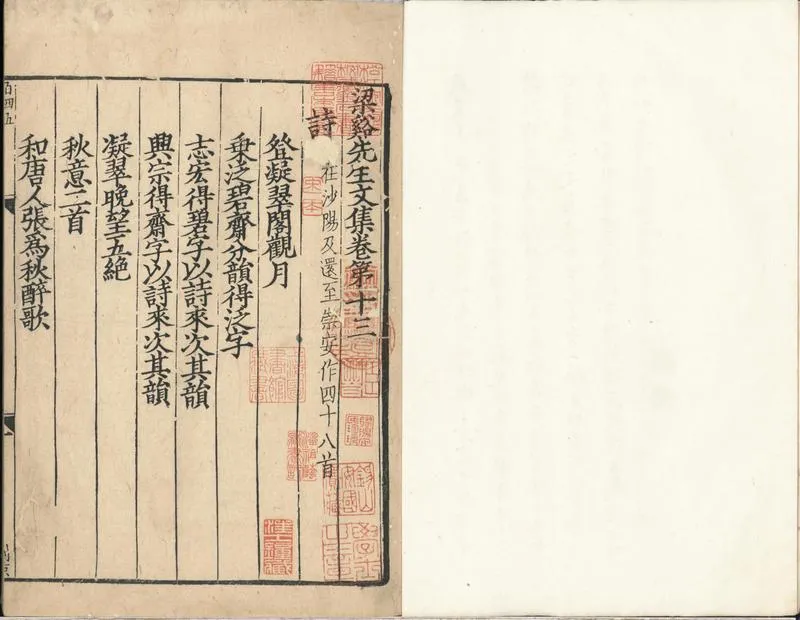 梁谿先生文集卷第十三
詩 在沙陽及還至崇安作四十八首
登凝翠閣觀月
乘泛碧齋分韻得泛字
志宏得碧字以詩來次其韻
興宗得齋字以詩來次其韻
凝翠晚望五絶
秋意二首
和唐人張爲秋醉歌
百四五